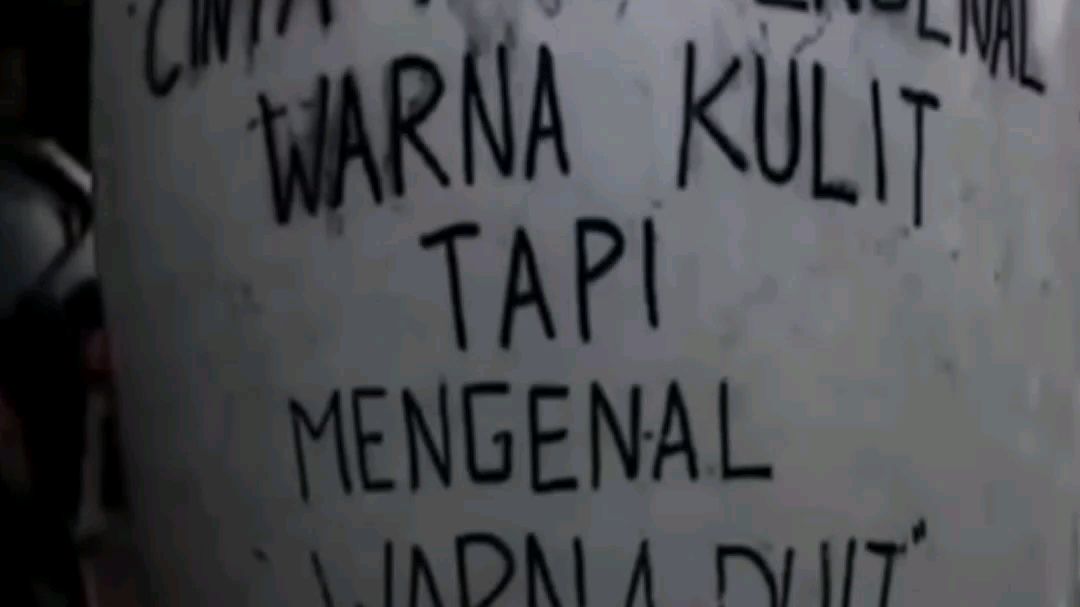 "CINTA MENGENAL
WARNA KULIT
TAPI
MENGENAL
"WARNA DUIT"